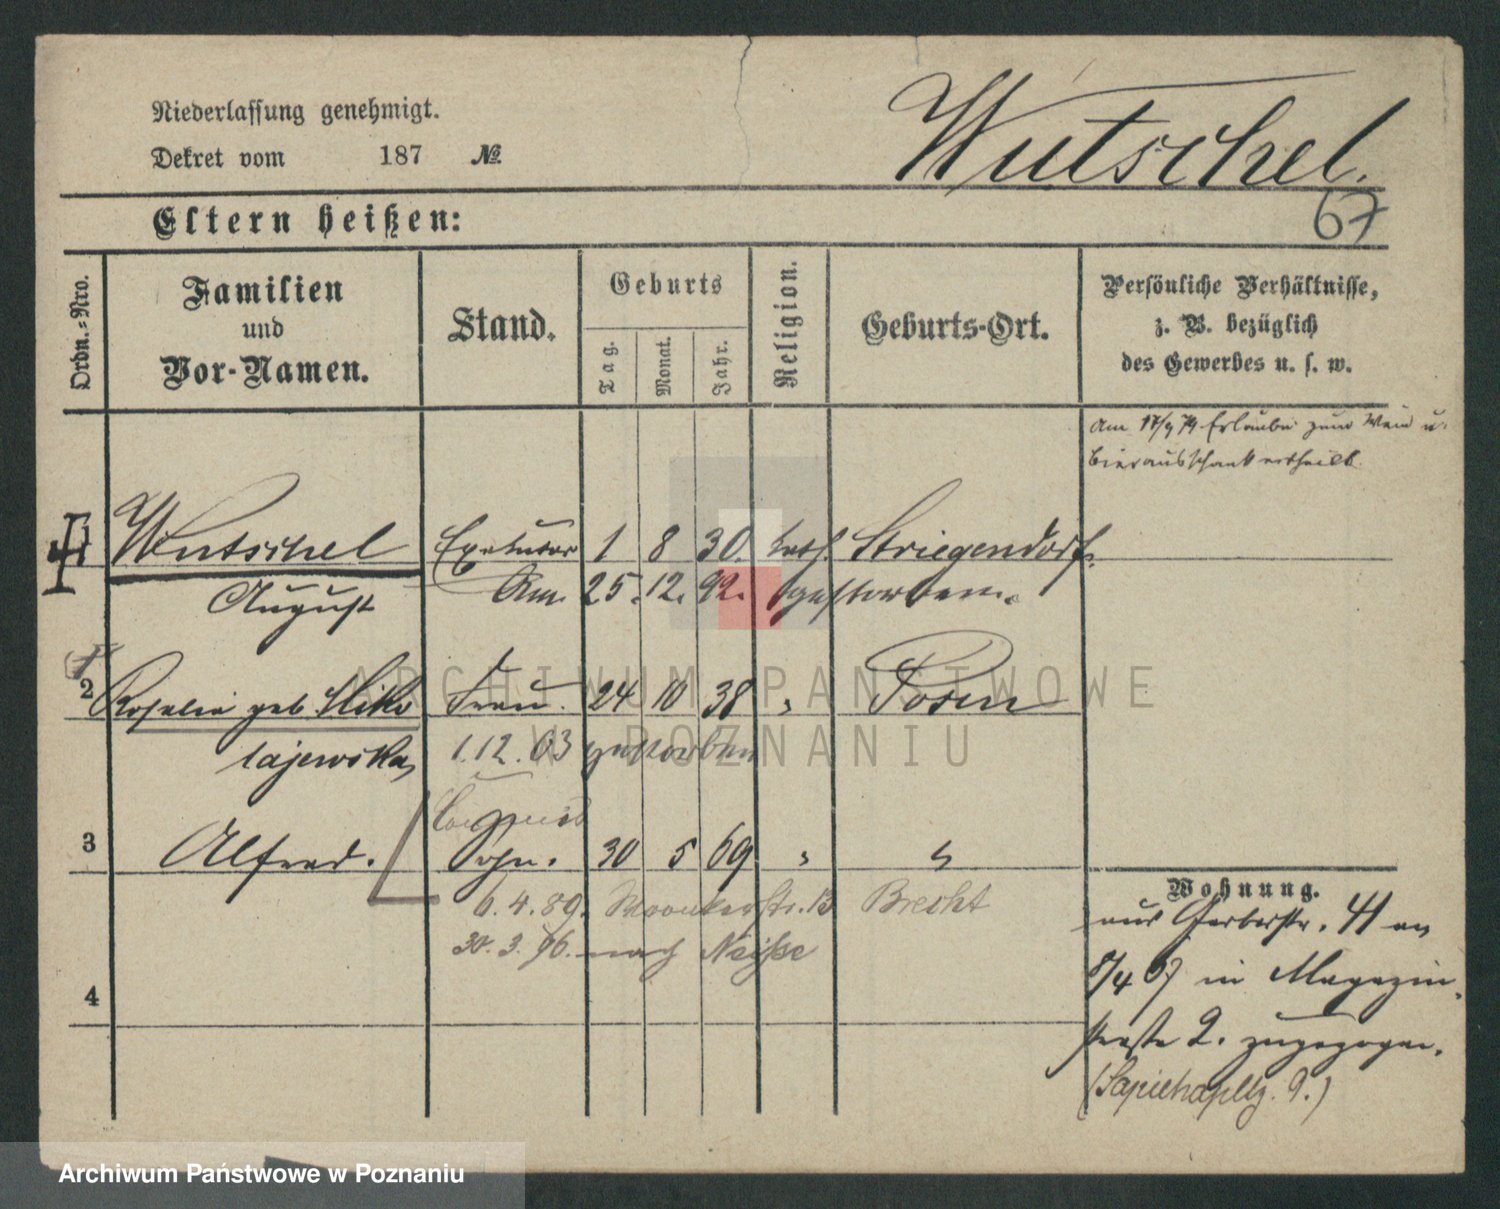 Niederlassung genehmigt.
Dekret vom 187 №
Wutschel.
67
Eltern heißen:
Ordn.=Nro.
Familien
und
Vor-Namen.
Stand.
Geburts
Tag.
Monat.
Jahr.
Religion.
Geburts-Ort.
Persönliche Verhältnisse,
z. B. bezüglich
des Gewerbes u. s. w.
Am 17/9 79 Erlaubn zum Wein u.
Bierausschank ertheilt.
1 Wutschel Exekutor 1 8 30. kath. Striegendorf.
August Am 25. 12. 92. gestorben.
2 Rosalie geb. Miko Frau. 24 10 38 " Posen
lajewska 1.12.03 gestorben
3 Alfred. Sohn. 30 5 69 " "
6.4.89. str. 13 Brecht
30.3.96. nach Neisse
4
Wohnung.
aus Gerberstr. 41 am
8/4 67 in Magazin-
straße 2. zugezogen.
(Sapiehapltz. 9.)
ARCHIWUM PAŃSTWOWE
W POZNANIU
Archiwum Państwowe w Poznaniu